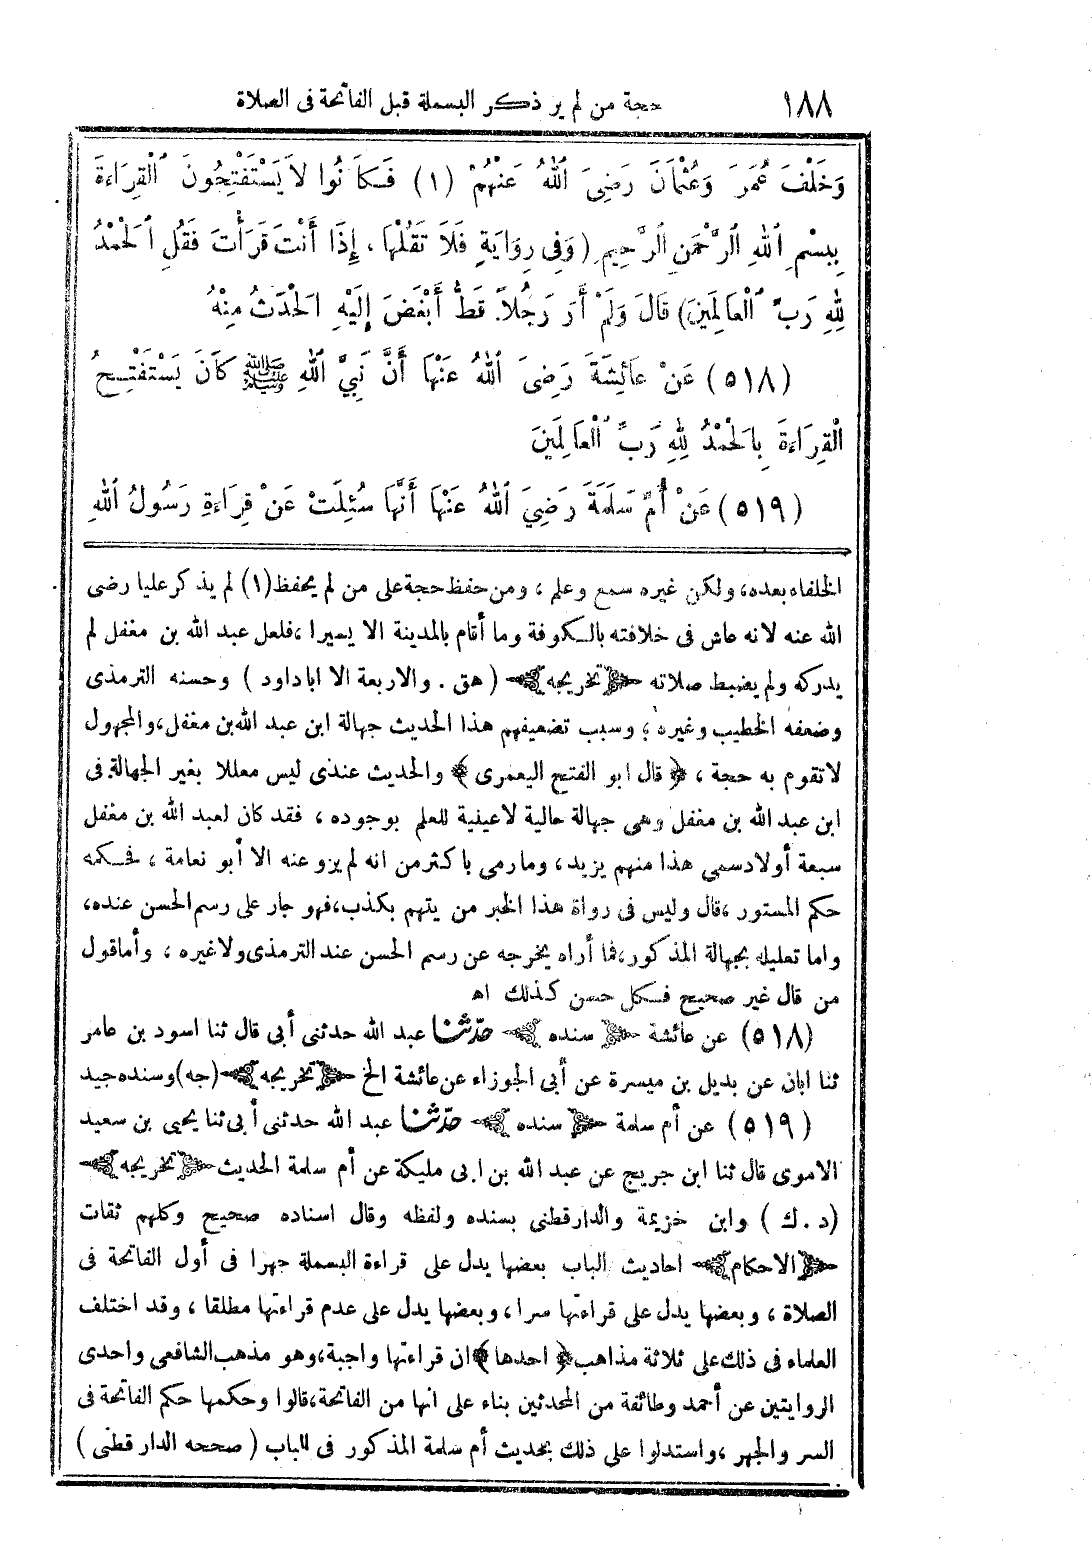 ١٨٨ حجة من لم ير ذكر البسملة قبل الفاتحة فى الصلاة
وَخَلْفَ عُمَرَ وَعُثْمَانَ رَضِىَ ٱللهُ عَنْهُمْ (١) فَكَانُوا لاَ يَسْتَفْتِحُونَ ٱلْقِرَاءَةَ
بِبِسْمِ ٱللهِ ٱلرَّحْمَنِ ٱلرَّحِيمِ (وَفِى رِوَايَةٍ فَلاَ تَقُلْهَا، إِذَا أَنْتَ قَرَأْتَ فَقُلِ ٱلْحَمْدُ
لِلهِ رَبِّ ٱلْعَالَمِينَ) قَالَ وَلَمْ أَرَ رَجُلاً قَطُّ أَبْغَضَ إِلَيْهِ الْحَدَثُ مِنْهُ
(٥١٨) عَنْ عَائِشَةَ رَضِىَ ٱللهُ عَنْهَا أَنَّ نَبِىَّ ٱللهِ ﷺ كَانَ يَسْتَفْتِحُ
الْقِرَاءَةَ بِالْحَمْدُ لِلهِ رَبِّ ٱلْعَالَمِينَ
(٥١٩) عَنْ أُمِّ سَلَمَةَ رَضِىَ ٱللهُ عَنْهَا أَنَّهَا سُئِلَتْ عَنْ قِرَاءَةِ رَسُولُ ٱللهِ
الخلفاء بعده، ولكن غيره سمع وعلم ، ومن حفظ حجة على من لم يحفظ (١) لم يذكر عليا رضى
الله عنه لانه عاش فى خلافته بالكوفة وما أقام بالمدينة الا يسيرا ،فلعل عبد الله بن مغفل لم
يدركه ولم يضبط صلاته ﴿ تخريجه ﴾ ( هق . والاربعة الا اباداود ) وحسنه الترمذى
وضعفه الخطيب وغيره ؛ وسبب تضعيفهم هذا الحديث جهالة ابن عبد الله بن مغفل،والمجهول
لاتقوم به حجة ، ﴿ قال ابو الفتح اليعمرى ﴾ والحديث عندى ليس معللا بغير الجهالة فى
ابن عبد الله بن مغفل وهى جهالة حالية لاعينية للعلم بوجوده ، فقد كان لعبد الله بن مغفل
سبعة أولادسمى هذا منهم يزيد، ومارمى باكثرمن انه لم يرو عنه الا أبو نعامة ، فحكمه
حكم المستور ،قال وليس فى رواة هذا الخبر من يتهم بكذب،فهو جار على رسم الحسن عنده،
واما تعليله بجهالة المذكور،فما أراه يخرجه عن رسم الحسن عند الترمذى ولاغيره ، وأماقول
من قال غير صحيح فكل حسن كذلك اه
(٥١٨) عن عائشة ﴿ سنده ﴾ حدّثنا عبد الله حدثنى أبى قال ثنا اسود بن عامر
ثنا ابان عن بديل بن ميسرة عن أبى الجوزاء عن عائشة الخ ﴿ تخريجه ﴾ (جه) وسنده جيد
(٥١٩) عن أم سلمة ﴿ سنده ﴾ حدّثنا عبد الله حدثنى أبى ثنا يحيى بن سعيد
الاموى قال ثنا ابن جريج عن عبد الله بن ابى مليكة عن أم سلمة الحديث ﴿ تخريجه ﴾
(د . ك ) وابن خزيمة والدارقطنى بسنده ولفظه وقال اسناده صحيح وكلهم ثقات
﴿ الاحكام ﴾ احاديث الباب بعضها يدل على قراءة البسملة جهرا فى أول الفاتحة فى
الصلاة ، وبعضها يدل على قراءتها سرا ، وبعضها يدل على عدم قراءتها مطلقا ، وقد اختلف
العلماء فى ذلك على ثلاثة مذاهب ﴿ احدها ﴾ ان قراءتها واجبة،وهو مذهب الشافعى واحدى
الروايتين عن أحمد وطائفة من المحدثين بناء على انها من الفاتحة،قالوا وحكمها حكم الفاتحة فى
السر والجهر ،واستدلوا على ذلك بحديث أم سلمة المذكور فى الباب ( صححه الدار قطنى )